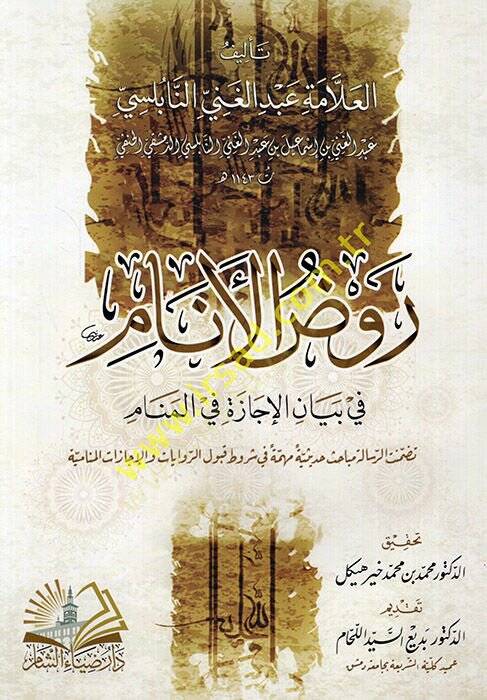 تأليف
العلامة عبد الغني النابلسي
عبد الغني بن إسماعيل بن عبد الغني النابلسي الدمشقي الحنفي
ت ١١٤٣ هـ
روض الأنام
في بيان الإجازة في المنام
تضمنت الرسالة مباحث حديثية مهمة في شروط قبول الروايات والإجازات المنامية
تحقيق
الدكتور محمد بن محمد خير هيكل
تقديم
الدكتور بديع السيد اللحام
عميد كلية الشريعة بجامعة دمشق
دار ضياء الشام
الله